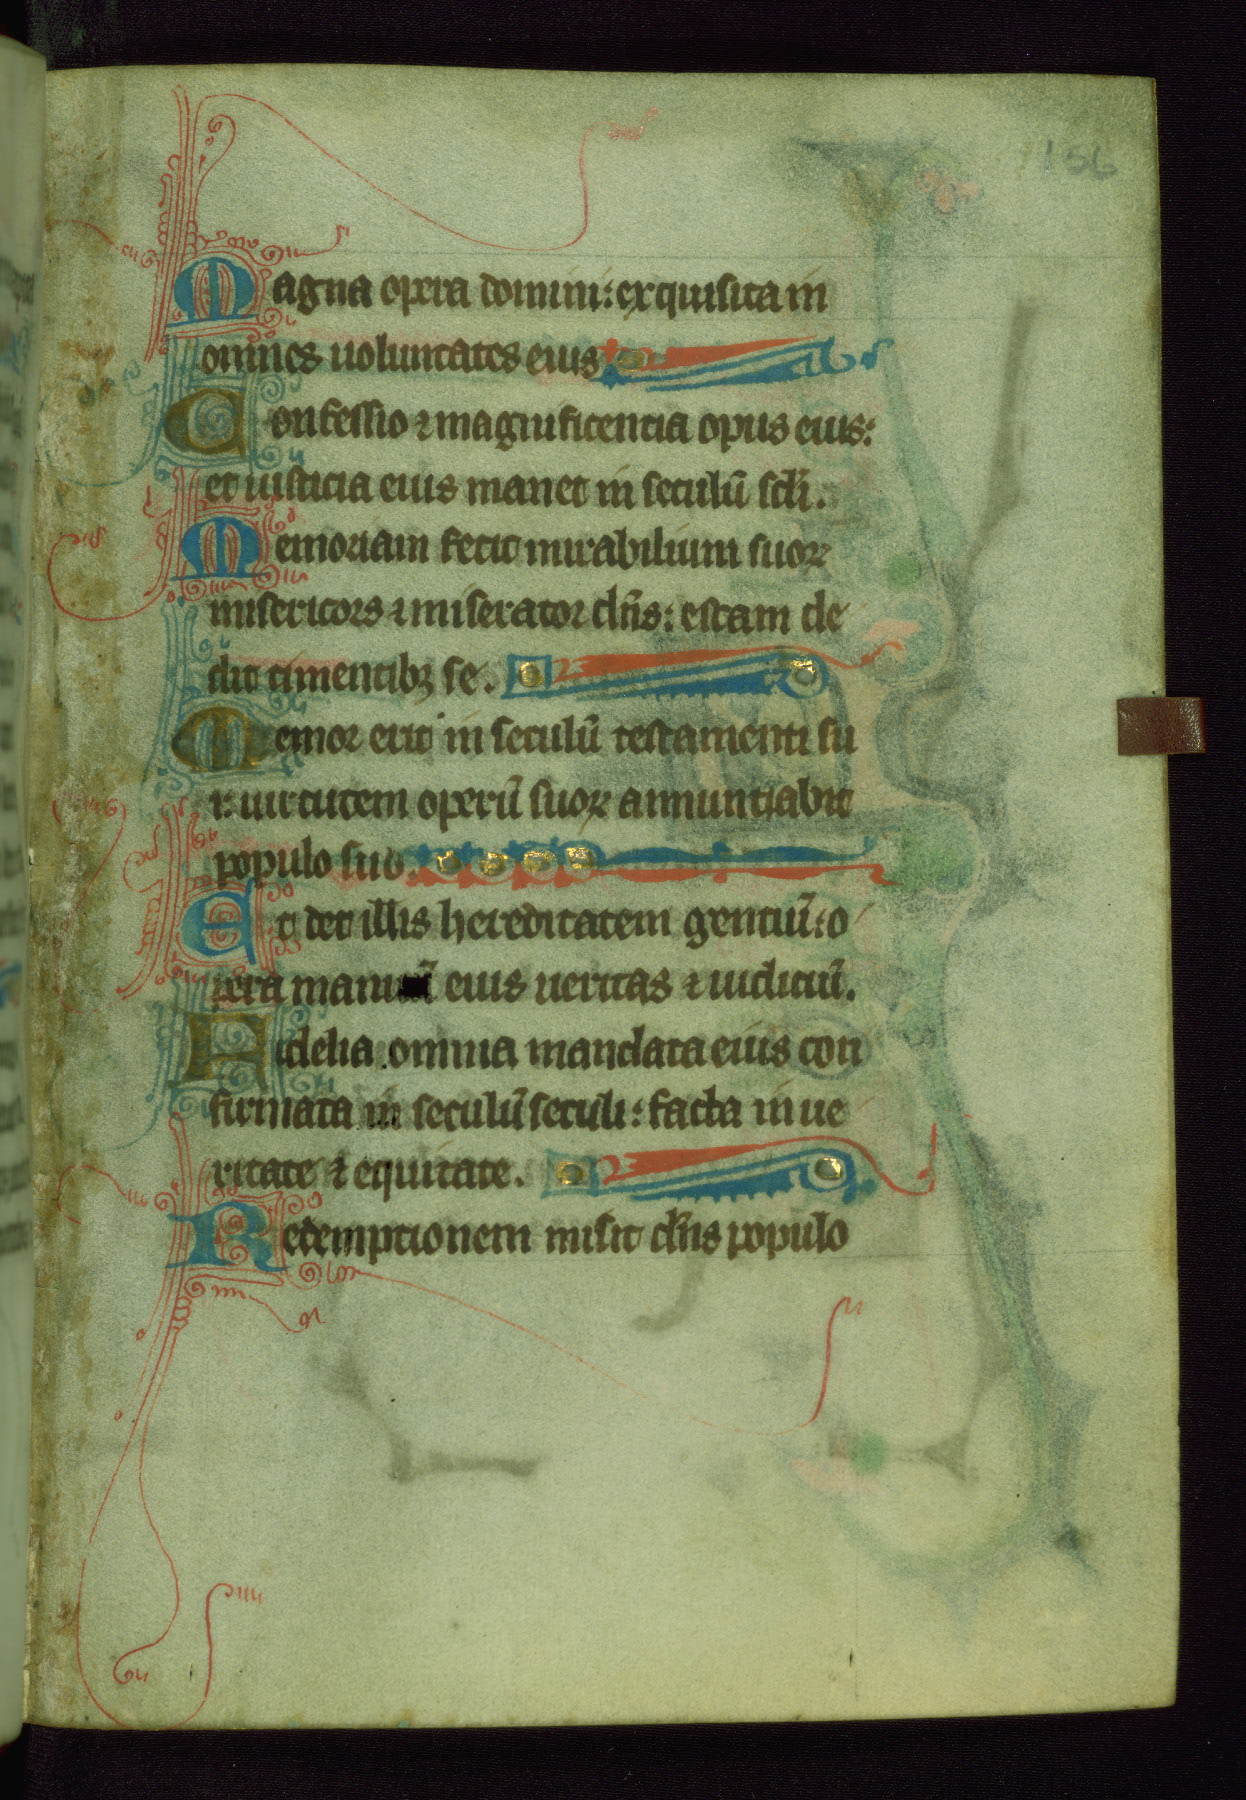 156
Magna opera domini: exquisita in
omnes uoluntates eius
Confessio ⁊ magnificencia opus eius:
et iusticia eius manet in seculū scłi.
Memoriam fecit mirabilium suoꝝ
misericors ⁊ miserator dn̄s: escam de
dit timentibꝫ se.
Memor erit in seculū testamenti su
i: uirtutem operū suoꝝ annuntiabit
populo suo.
Et det illis hereditatem gentiū: o
pera manuū eius ueritas ⁊ iudiciū.
Fidelia omnia mandata eius con
firmata in seculū seculi: facta in ue
ritate ⁊ equitate.
Redemptionem misit dn̄s populo